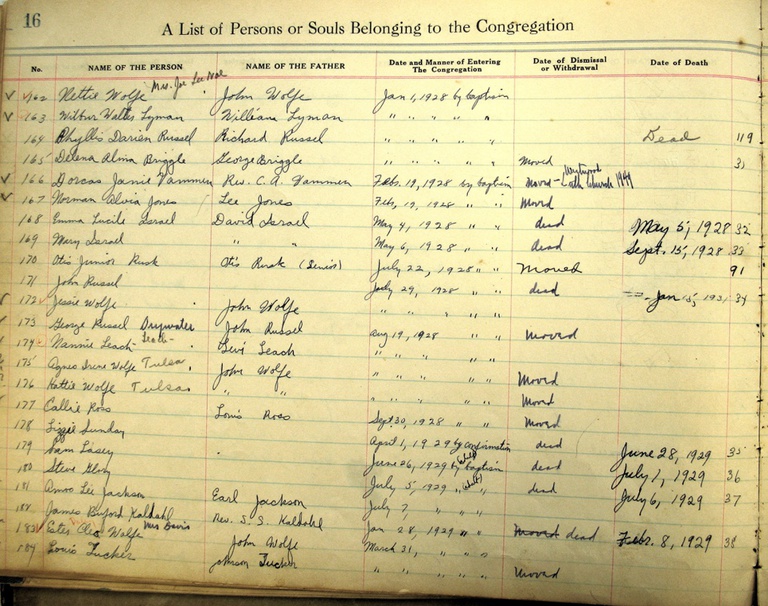 16
A List of Persons or Souls Belonging to the Congregation
No. NAME OF THE PERSON NAME OF THE FATHER Date and Manner of Entering The Congregation Date of Dismissal or Withdrawal Date of Death
162 Nettie Wolfe Mrs. Joe Lee John Wolfe Jan 1, 1928 by baptism
163 Wilbur Walter Lyman William Lyman " " " " "
164 Phyllis Darien Russel Richard Russel " " " " " Dead 119
165 Delena Alma Briggle George Briggle " " " " " Moved
166 Dorcas Janie Vammen Rev. C. A. Vammen Febr. 19, 1928 by baptism Moved - Church 1949
167 Norman Alvia Jones Lee Jones Feb, 19, 1928 " " Moved
168 Emma Lucile Israel David Israel May 4, 1928 " " dead May 5, 1928 32
169 Mary Israel " " May 6, 1928 " " dead Sept. 15, 1928 33
170 Otis Junior Rusk Otis Rusk (Senior) July 22, 1928 " " Moved 91
171 John Russel July 29, 1928 " " dead Jan 15, 1931 34
172 Jessie Wolfe John Wolfe " " " " "
173 George Russel Drywater John Russel Aug 19, 1928 " " Moved
174 Nannie Leach Levi Leach " " " " "
175 Agnes Irene Wolfe Tulsa John Wolfe " " " " " Moved
176 Kattie Wolfe Tulsa " " " " " " " Moved
177 Callie Ross Louis Ross Sept 30, 1928 " " Moved
178 Lizzie Sunday April 1, 1929 by confirmation dead June 28, 1929 35
179 Sam Lasey June 26, 1929 by (Adult) baptism dead July 1, 1929 36
180 Steve Glory July 5, 1929 " (Adult) " dead July 6, 1929 37
181 Amos Lee Jackson Earl Jackson July 7, " " "
182 James Buford Kaldahl Rev. S. S. Kaldahl Jan 28, 1929 " " Moved dead Febr. 8, 1929 38
183 Ester Cleo Wolfe Mrs Davis John Wolfe March 31, " " " "
184 Louis Tucker Johnson Tucker " " " " " Moved